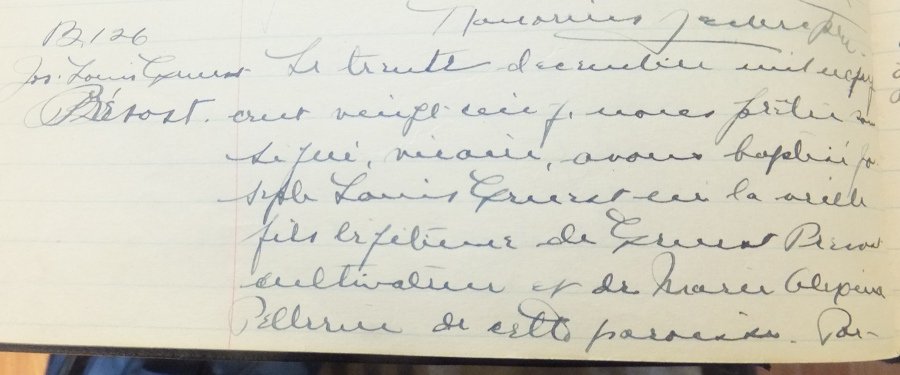 B. 126
Jos. Louis Ernest
Prévost.
Le trente décembre mil neuf
cent vingt cinq, nous prêtre sous
signé, vicaire, avons baptisé Jo
seph Louis Ernest né la veille
fils légitime de Ernest Prévost
cultivateur et de Marie Alexina
Pellerin de cette paroisse. Par-